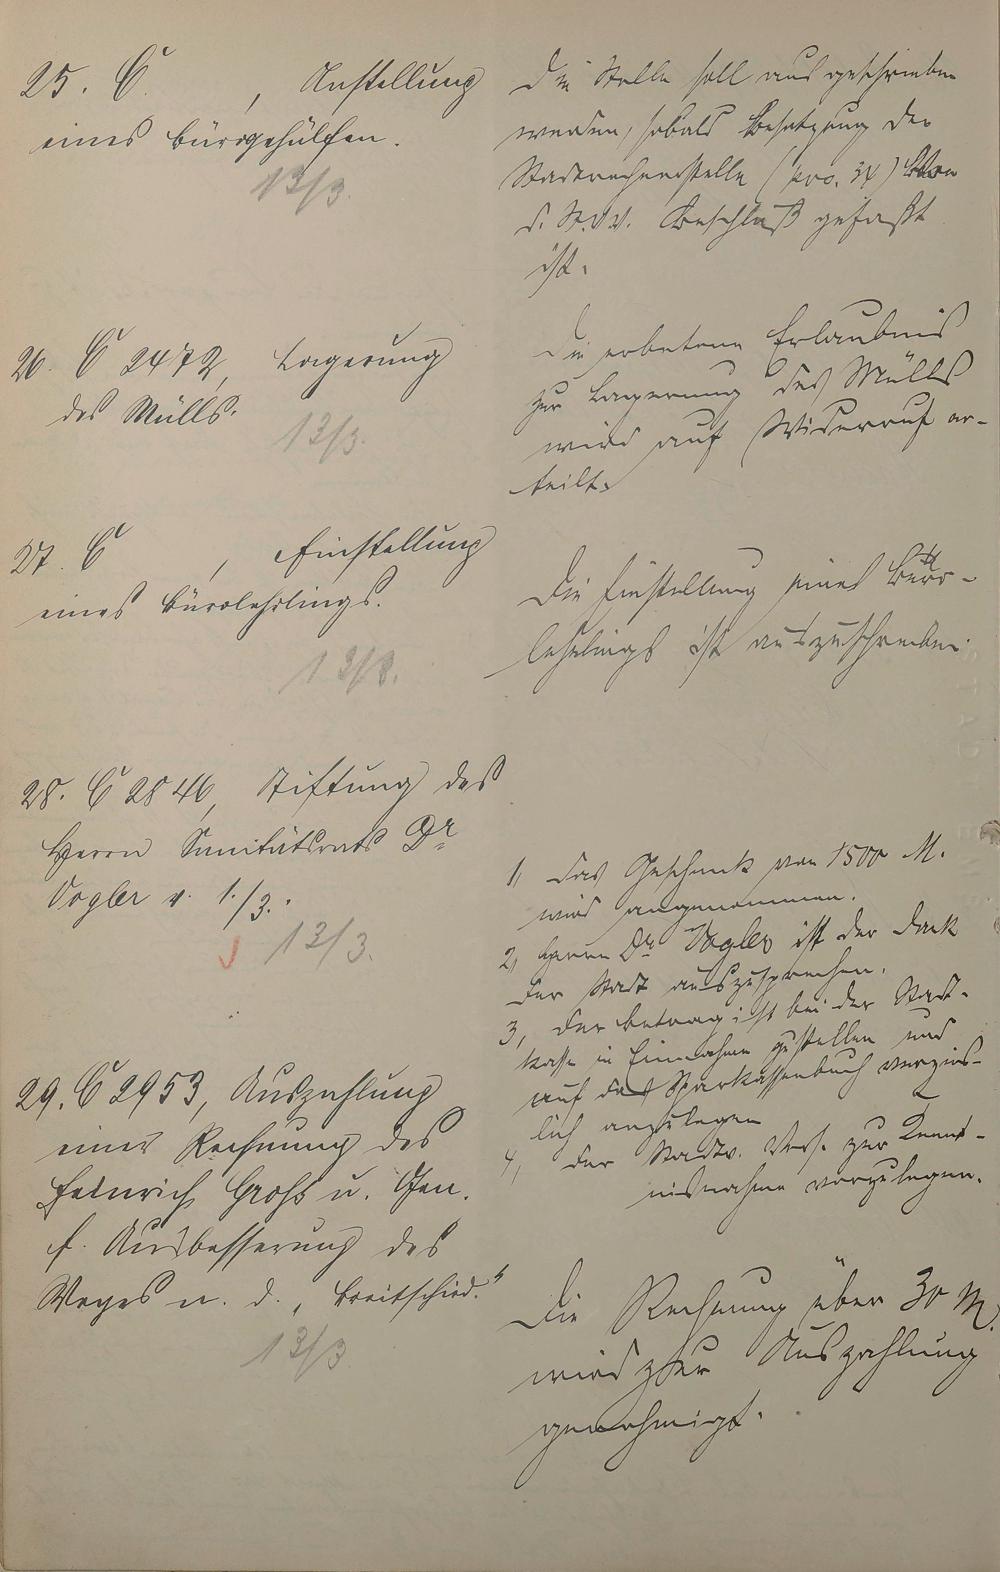 25. C , Anstellung
eines Bürogehülfen.
13/3.
Die Stelle soll ausgeschrieben
werden, sobald Besetzung der
Stadtrechnerstelle (pro. 34) von
d. St.V.V. Beschluß gefaßt
ist.
26. C 2472, Lagerung
des Mülls.
13/3.
Die erbetene Erlaubnis
zur Lagerung des Mülls
wird auf Widerruf er-
teilt.
27. C , Einstellung
eines Bürolehrlings.
13/3.
Die Einstellung eines Büro-
lehrlings ist auszuschreiben.
28. C 2846, Stiftung des
Herrn Sanitätsrats Dr
Vogler v. 1./3.
13/3.
1, Das Geschenk von 1500 M.
wird angenommen.
2, Herrn Dr Vogler ist der Dank
der Stadt auszusprechen.
3, Der Betrag ist bei der Stadt-
kasse in Einnahme zu stellen und
auf das Sparkassenbuch verzins-
lich anzulegen
4, Der Stadtv. Vers. zur Kennt-
nisnahme vorzulegen.
29. C 2953, Auszahlung
einer Rechnung des
Heinrich Groß u. Gen.
f. Ausbesserung des
Weges n. d. „Breitschied."
13/3
Die Rechnung über 30 M.
wird zur Auszahlung
genehmigt.